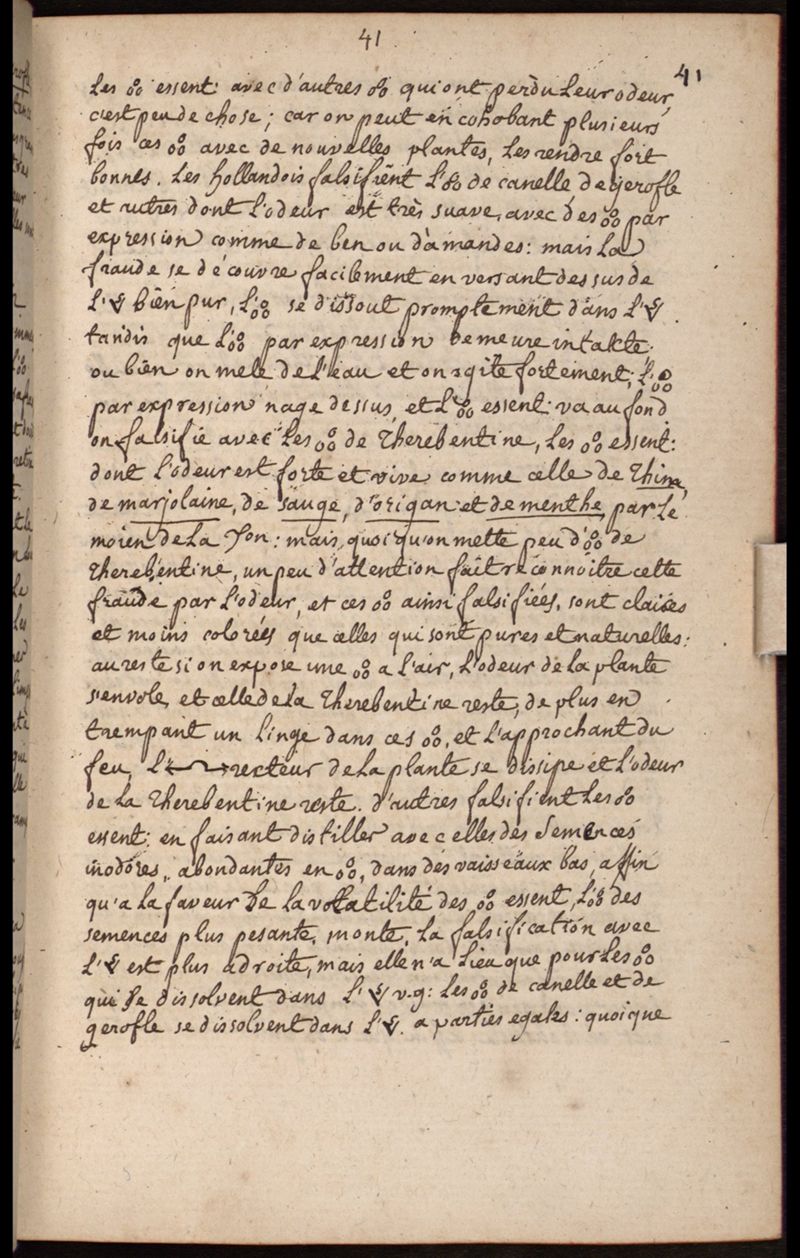 41
41
Les ꝏ essent: avec d'autres ꝏ qui ont perdu Leur odeur,
c'est peu de chose; car on peut en cohobant plusieurs
fois ces ꝏ avec de nouvelles plantes, Les rendre fort
bonnes. Les hollandois falsifient L'ꝏ de canelle de gerofle
et autres dont L'odeur est très suave, avec des ꝏ par
expression comme de ben ou d'amandes: mais La
fraude se découvre facilement en versant dessus de
L'🜈 bien pur, L'ꝏ se dissout promptement dans L'🜈.
tandis que L'ꝏ par expression demeure intakte.
ou bien on mele de L'eau et on agite fortement; L'ꝏ
par expression nage dessus et L'ꝏ essent: va au fond
on falsifie avec Les ꝏ de Therebentine, Les ꝏ essent:
dont L'odeur est forte et vive comme celle de Thim,
de marjolaine, de sauge, d'origan et de menthe, par Le
moien de La Yon: mais, quoi qu'on mette peu d'ꝏ de
Therebentine, un peu d'attention fait reconnoitre cette
fraude par L'odeur, et ces ꝏ ainsi falsifiées, sont claires
et moins colorées que celles qui sont pures et naturelles:
au reste si on expose une ꝏ a L'air, L'odeur de la plante
s'envole, et celle de La Therebentine reste, de plus en
trempant un Linge dans ces ꝏ, et L'approchant du
feu, L' recteur de La plante se dissipe et L'odeur
de La Therebentine reste. d'autres falsifient Les ꝏ
essent: en faisant distiller avec elles des Semences
inodores, abondantes en ꝏ, dans des vaisseaux bas, affin
qu'a La faveur De La volatilité des ꝏ essent, L'ꝏ des
semences plus pesante, monte, La falsification avec
L'🜈 est plus adroite, mais elle n'a Lieu que pour Les ꝏ
qui Se dissolvent dans L'🜈 v.g: Les ꝏ de canelle et de
gerofle se dissolvent dans L'🜈. a parties egales: quoique